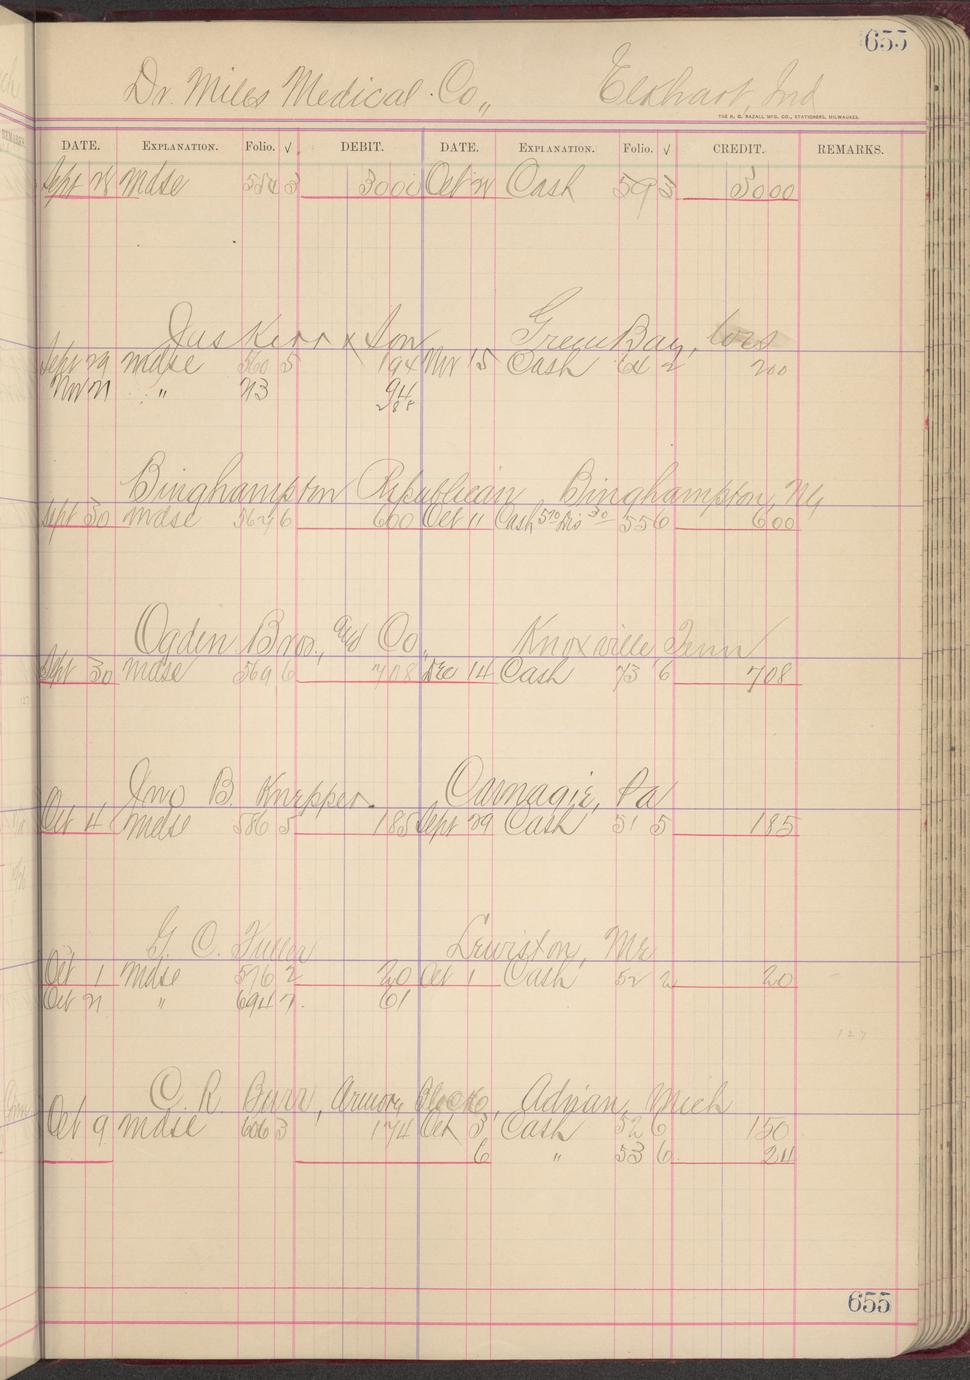 655
Dr. Miles Medical Co,, Elkhart, Ind
THE H. G. RAZALL MFG. CO., STATIONERS, MILWAUKEE.
DATE. EXPLANATION. Folio. √ DEBIT. DATE. EXPLANATION. Folio. √ CREDIT. REMARKS.
Sept 28 mdse 554 3 3000 Oct 21 Cash 59 3 3000
Jas Kerr & Son Green Bay, Wis
Sept 29 mdse 560 5 194 Nov 15 Cash 64 2 200
Nov 21 " 73 94
288
Binghampton Republican Binghampton, Ny
Sept 30 mdse 6 600 Oct 11 Cash 55 6 600
Ogden Bros., and Co,, Knoxville Tenn
Sept 30 mdse 569 6 708 Dec 14 Cash 75 6 708
Jno B. Knepper. Carnagie, Pa
Oct 4 mdse 586 5 185 Sept 29 Cash 51 5 185
G. C. Fuller Lewiston, Me
Oct 1 mdse 576 2 20 Oct 1 Cash 52 2 20
Oct 21 " 694 7. 61
127
C. R. Burr, Armory Block, Adrian, Mich
Oct 9 mdse 606 3 174 Oct 3 Cash 52 6 150
6 " 53 6 24
655